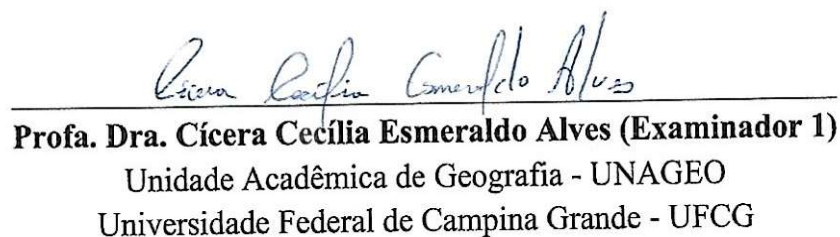 Cícera Cecília Esmeraldo Alves
Profa. Dra. Cícera Cecília Esmeraldo Alves (Examinador 1)
Unidade Acadêmica de Geografia - UNAGEO
Universidade Federal de Campina Grande - UFCG